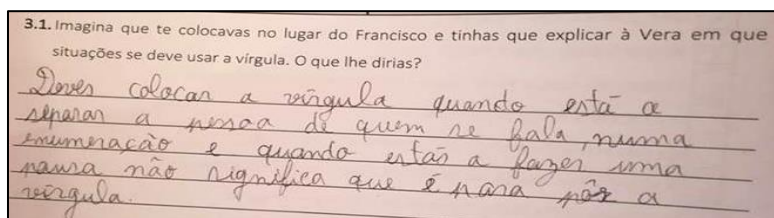 3.1. Imagina que te colocavas no lugar do Francisco e tinhas que explicar à Vera em que
situações se deve usar a vírgula. O que lhe dirias?
Deves colocar a vírgula quando está a
separar a pessoa de quem se fala, numa
enumeração e quando estás a fazer uma
pausa não significa que é para pôr a
vírgula.